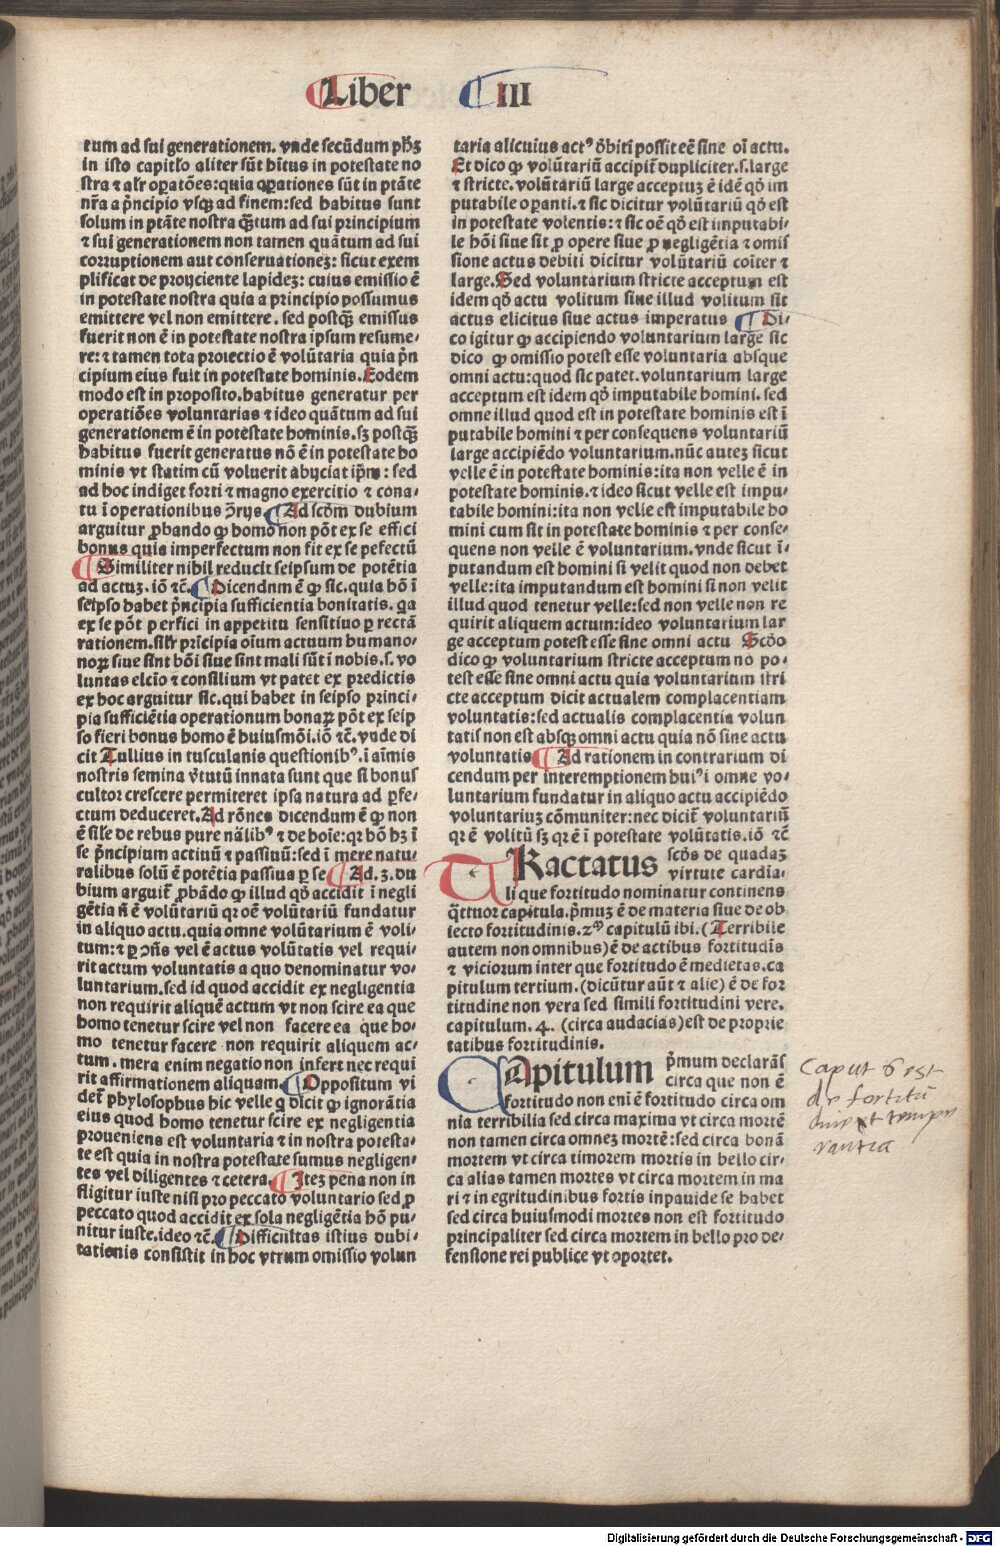 Liber III
tum ad sui generationem. vnde secũdum phз
in isto capitło aliter sũt hĩtus in potestate no
stra ⁊ alr̃ oꝑatões: quia oꝑationes sũt in ptãte
nr̃a a p̃ncipio vsqꝫ ad finem: sed habitus sunt
solum in ptãte nostra qꝫtum ad sui principium
⁊ sui generationem non tamen quãtum ad sui
corruptionem aut conseruationeꝫ: sicut exem
plificat de proijciente lapideꝫ: cuius emissio ẽ
in potestate nostra quia a principio possumus
emittere vel non emittere. sed postqꝫ emissus
fuerit non ẽ in potestate nostra ipsum resume⸗
re: ⁊ tamen tota proiectio ẽ volũtaria quia p̃n
cipium eius fuit in potestate hominis. Eodem
modo est in proposito. habitus generatur per
operatiões voluntarias ⁊ ideo quãtum ad sui
generationem ẽ in potestate hominis. sꝫ postqꝫ
habitus fuerit generatus nõ ẽ in potestate ho
minis vt statim cũ voluerit abijciat ip̃m: sed
ad hoc indiget forti ⁊ magno exercitio ⁊ cona⸗
tu ĩ operationibus ꝯ̃rijs. Ad scd̃m dubium
arguitur ꝓbando ꝙ homo non põt ex se effici
bonus quia imperfectum non fit ex se pefectũ
Similiter nihil reducit seipsum de potẽtia
ad actuꝫ. iõ ⁊c̃. Dicendnm ẽ ꝙ sic. quia hõ ĩ
seipso habet p̃ncipia sufficientia bonitatis. qa
ex se põt perfici in appetitu sensitiuo ꝑ rectã
rationem. silr̃ prĩcipia oĩum actuum humano⸗
noꝝ siue sint bõi siue sint mali sũt ĩ nobis. s. vo
luntas elcĩo ⁊ consilium vt patet ex predictis
ex hoc arguitur sic. qui habet in seipso princi⸗
pia sufficiẽtia operationum bonaꝝ põt ex seip
so fieri bonus homo ẽ huiusmõi. iõ ⁊c̃. vnde di
cit Tullius in tusculanis questionibꝰ. ĩ aĩmis
nostris semina ṽtutũ innata sunt que si bonus
cultor crescere permiteret ipsa natura ad ꝑfe⸗
ctum deduceret. Ad rõnes dicendum ẽ ꝙ non
ẽ sil̃e de rebus pure nãlibꝰ ⁊ de hoĩe: qꝛ hõ hꝫ ĩ
se p̃ncipium actiuũ ⁊ passiuũ: sed ĩ mere natu⸗
ralibus solũ ẽ potẽtia passiua ꝑ se Ad .3. du
bium arguit̃ ꝓbãdo ꝙ illud qõ accidit ĩ negli
gẽtia ñ ẽ volũtariũ qꝛ oẽ volũtariũ fundatur
in aliquo actu. quia omne volũtarium ẽ voli⸗
tum: ⁊ ꝑ ꝯñs vel ẽ actus volũtatis vel requi⸗
rit actum voluntatis a quo denominatur vo⸗
luntarium. sed id quod accidit ex negligentia
non requirit aliquẽ actum vt non scire ea que
homo tenetur scire vel non facere ea que ho⸗
mo tenetur facere non requirit aliquem ac⸗
tum. mera enim negatio non infert nec requi
rit affirmationem aliquam. Oppositum vi
det̃ phylosophus hic velle q̃ dicit ꝙ ignorãtia
eius quod homo tenetur scire ex negligentia
proueniens est voluntaria ⁊ in nostra potesta⸗
te est quia in nostra potestate sumus negligen⸗
tes vel diligentes ⁊ cetera. Iteꝫ pena non in
fligitur iuste nisi pro peccato voluntario sed ꝓ
peccato quod accidit ex sola negligẽtia hõ pu⸗
nitur iuste. ideo ⁊c̃. Difficultas istius dubi⸗
tationis consistit in hoc vtrum omissio volun
taria alicuius actꝰ õbiti possit eẽ sine oĩ actu.
Et dico ꝙ volũtariũ accipit̃ dupliciter. s. large
⁊ stricte. volũtariũ large acceptuꝫ ẽ idẽ qõ im
putabile oꝑanti. ⁊ sic dicitur volũtariũ qõ est
in potestate volentis: ⁊ sic oẽ qõ est imputabi⸗
le hõi siue sit ꝓ opere siue ꝓ negligẽtia ⁊ omis
sione actus debiti dicitur volũtariũ coĩter ⁊
large. Sed voluntarium stricte acceptum est
idem qõ actu volitum siue illud volitum sit
actus elicitus siue actus imperatus Di⸗
co igitur ꝙ accipiendo voluntarium large sic
dico ꝙ omissio potest esse voluntaria absque
omni actu: quod sic patet. voluntarium large
acceptum est idem qõ imputabile homini. sed
omne illud quod est in potestate hominis est ĩ
putabile homini ⁊ per consequens voluntariũ
large accipiẽdo voluntarium. nũc auteꝫ sicut
velle ẽ in potestate hominis: ita non velle ẽ in
potestate hominis. ⁊ ideo sicut velle est impu⸗
tabile homini: ita non velle est imputabile ho
mini cum sit in potestate hominis ⁊ per conse⸗
quens non velle ẽ voluntarium. vnde sicut ĩ⸗
putandum est homini si velit quod non debet
velle: ita imputandum est homini si non velit
illud quod tenetur velle: sed non velle non re
quirit aliquem actum: ideo voluntarium lar
ge acceptum potest esse sine omni actu Scõo
dico ꝙ voluntarium stricte acceptum nõ po⸗
test esse sine omni actu quia voluntarium stri
cte acceptum dicit actualem complacentiam
voluntatis: sed actualis complacentia volun
tatis non est absqꝫ omni actu quia nõ sine actu
voluntatis Ad rationem in contrarium di
cendum per interemptionem huiꝰi omne vo⸗
luntarium fundatur in aliquo actu accipiẽdo
voluntariuꝫ cõmuniter: nec dicit̃ voluntariũ
qꝛ ẽ volitũ sꝫ qꝛ ẽ ĩ potestate volũtatis. iõ ⁊c̃
TRactatus scõs de quadaꝫ
virtute cardia⸗
li que fortitudo nominatur continens
q̃ttuor capitula. p̃muꝫ ẽ de materia siue de ob
iecto fortitudinis. 2ᵐ capitulũ ibi. (Terribile
autem non omnibus) ẽ de actibus fortitudĩs
⁊ viciorum inter que fortitudo ẽ medietas. ca
pitulum tertium. (dicũtur aũt ⁊ alie) ẽ de for
titudine non vera sed simili fortitudini vere.
capitulum. 4. (circa audacias) est de proprie
tatibus fortitudinis.
CApitulum p̃mum declarãs
circa que non ẽ
fortitudo non enĩ ẽ fortitudo circa om
nia terribilia sed circa maxima vt circa mortẽ
non tamen circa omneꝫ mortẽ: sed circa bonã
mortem vt circa timorem mortis in bello cir⸗
ca alias tamen mortes vt circa mortem in ma
ri ⁊ in egritudinibus fortis inpauide se habet
sed circa huiusmodi mortes non est fortitudo
principaliter sed circa mortem in bello pro de⸗
fensione rei publice vt oportet.
Caput 6 est
de fortitu
temper
rantia
Digitalisierung gefördert durch die Deutsche Forschungsgemeinschaft - DFG